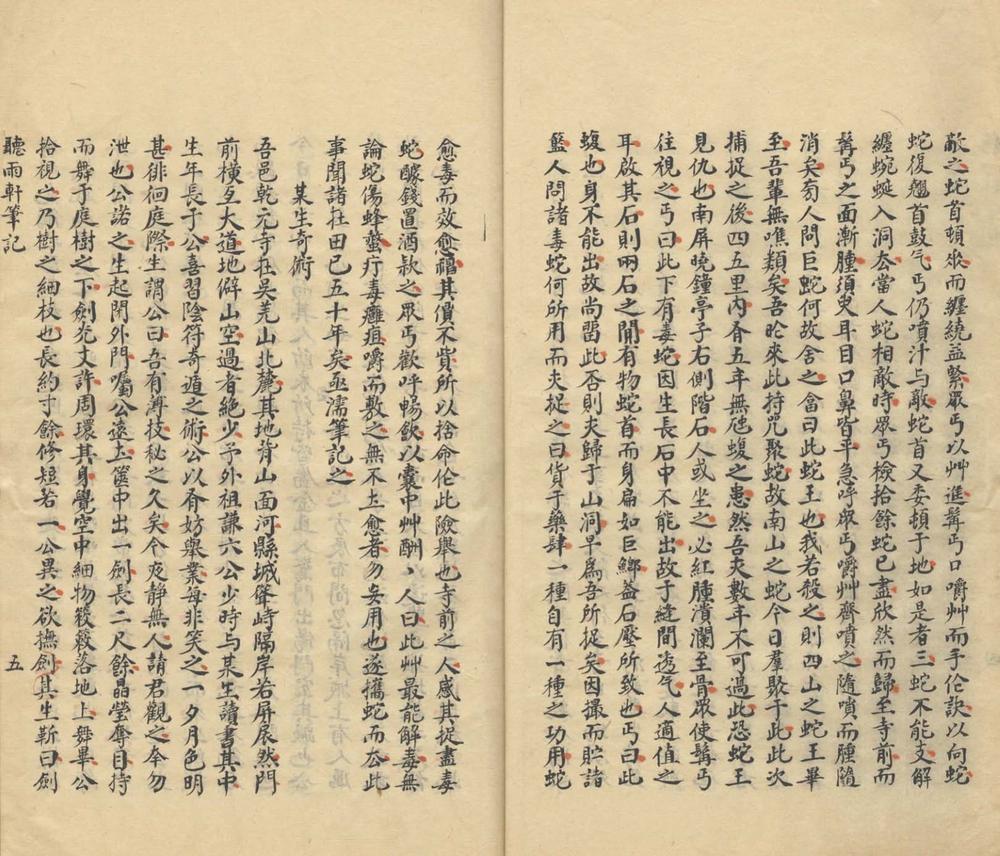 敵之蛇首頓垂而纏繞益緊眾丐以艸進髯丐口嚼艸而手作訣以向蛇
蛇復翹首鼓气丐仍噴汁与敵蛇首又委頓于地如是者三蛇不能支解
纏蜿蜒入洞去當人蛇相敵時眾丐檢拾餘蛇已盡欣然而歸至寺前而
髯丐之面漸腫須臾耳目口鼻皆平急呼眾丐嚼艸齊噴之隨噴而腫隨
消矣有人問巨蛇何故舍之畣曰此蛇王也我若殺之則四山之蛇王畢
至吾輩無噍類矣吾昨來此持咒聚蛇故南山之蛇今日羣聚于此此次
捕捉之後四五里内有五年無虺蝮之患然吾夫數年不可過此恐蛇王
見仇也南屏曉鐘亭子右側階石人或坐之必紅腫潰瀾至骨眾使髯丐
往視之丐曰此下有毒蛇因生長石中不能出故于縫間透气人適值之
耳啟其石則兩石之間有物蛇首而身扁如巨鯽益石壓所致也丐曰此
蝮也身不能出故尚畱此否則夫歸于山洞早為吾所捉矣因撮而貯諸
籃人問諸毒蛇何所用而夫捉之曰貨于藥肆一種自有一種之功用蛇
愈毒而效愈禧其價不貲所以捨命作此險舉也寺前之人感其捉盡毒
蛇醵錢置酒款之眾丐歡呼暢飲以囊中艸酬丶人曰此艸最能解毒無
論蛇傷蜂蠆疔毒癰疽嚼而敷之無不立愈者勿妄用也遂攜蛇而去此
事聞諸荘田已五十年矣亟濡筆記之
某生奇術
吾邑乾元寺在吳羌山北麓其地背山面河縣城聳峙隔岸若屏扆然門
前橫亙大道地僻山空過者絶少予外祖謙六公少時与某生讀書其中
生年長于公喜習陰符奇遁之術公以有妨舉業每非笑之一夕月色明
甚徘徊庭際生謂公曰吾有薄技秘之久矣今夜静無人請君觀之幸勿
泄也公諾之生起閉外門囑公遠立篋中出一劍長二尺餘晶瑩奪目持
而舞于庭樹之下劍光丈許周環其身覺空中細物簌簌落地上舞畢公
拾視之乃樹之細枝也長約寸餘修短若一公異之欲撫劍其生靳曰劍
聽雨軒筆記
五